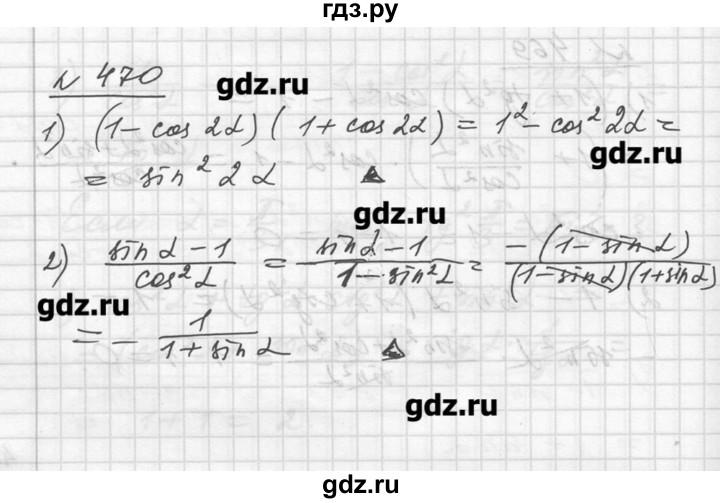 гдз.ру
№ 470
gdz.ru
1) (1 - cos 2α)(1 + cos 2α) = 1² - cos² 2α =
gdz.ru
= sin² 2α
gdz.ru
2) (sin α - 1)/(cos² α) = (sin α - 1)/(1 - sin² α) = (-(1 - sin α))/((1 - sin α)(1 + sin α))
gdz.ru
= - 1/(1 + sin α)
gdz.ru
gdz.ru